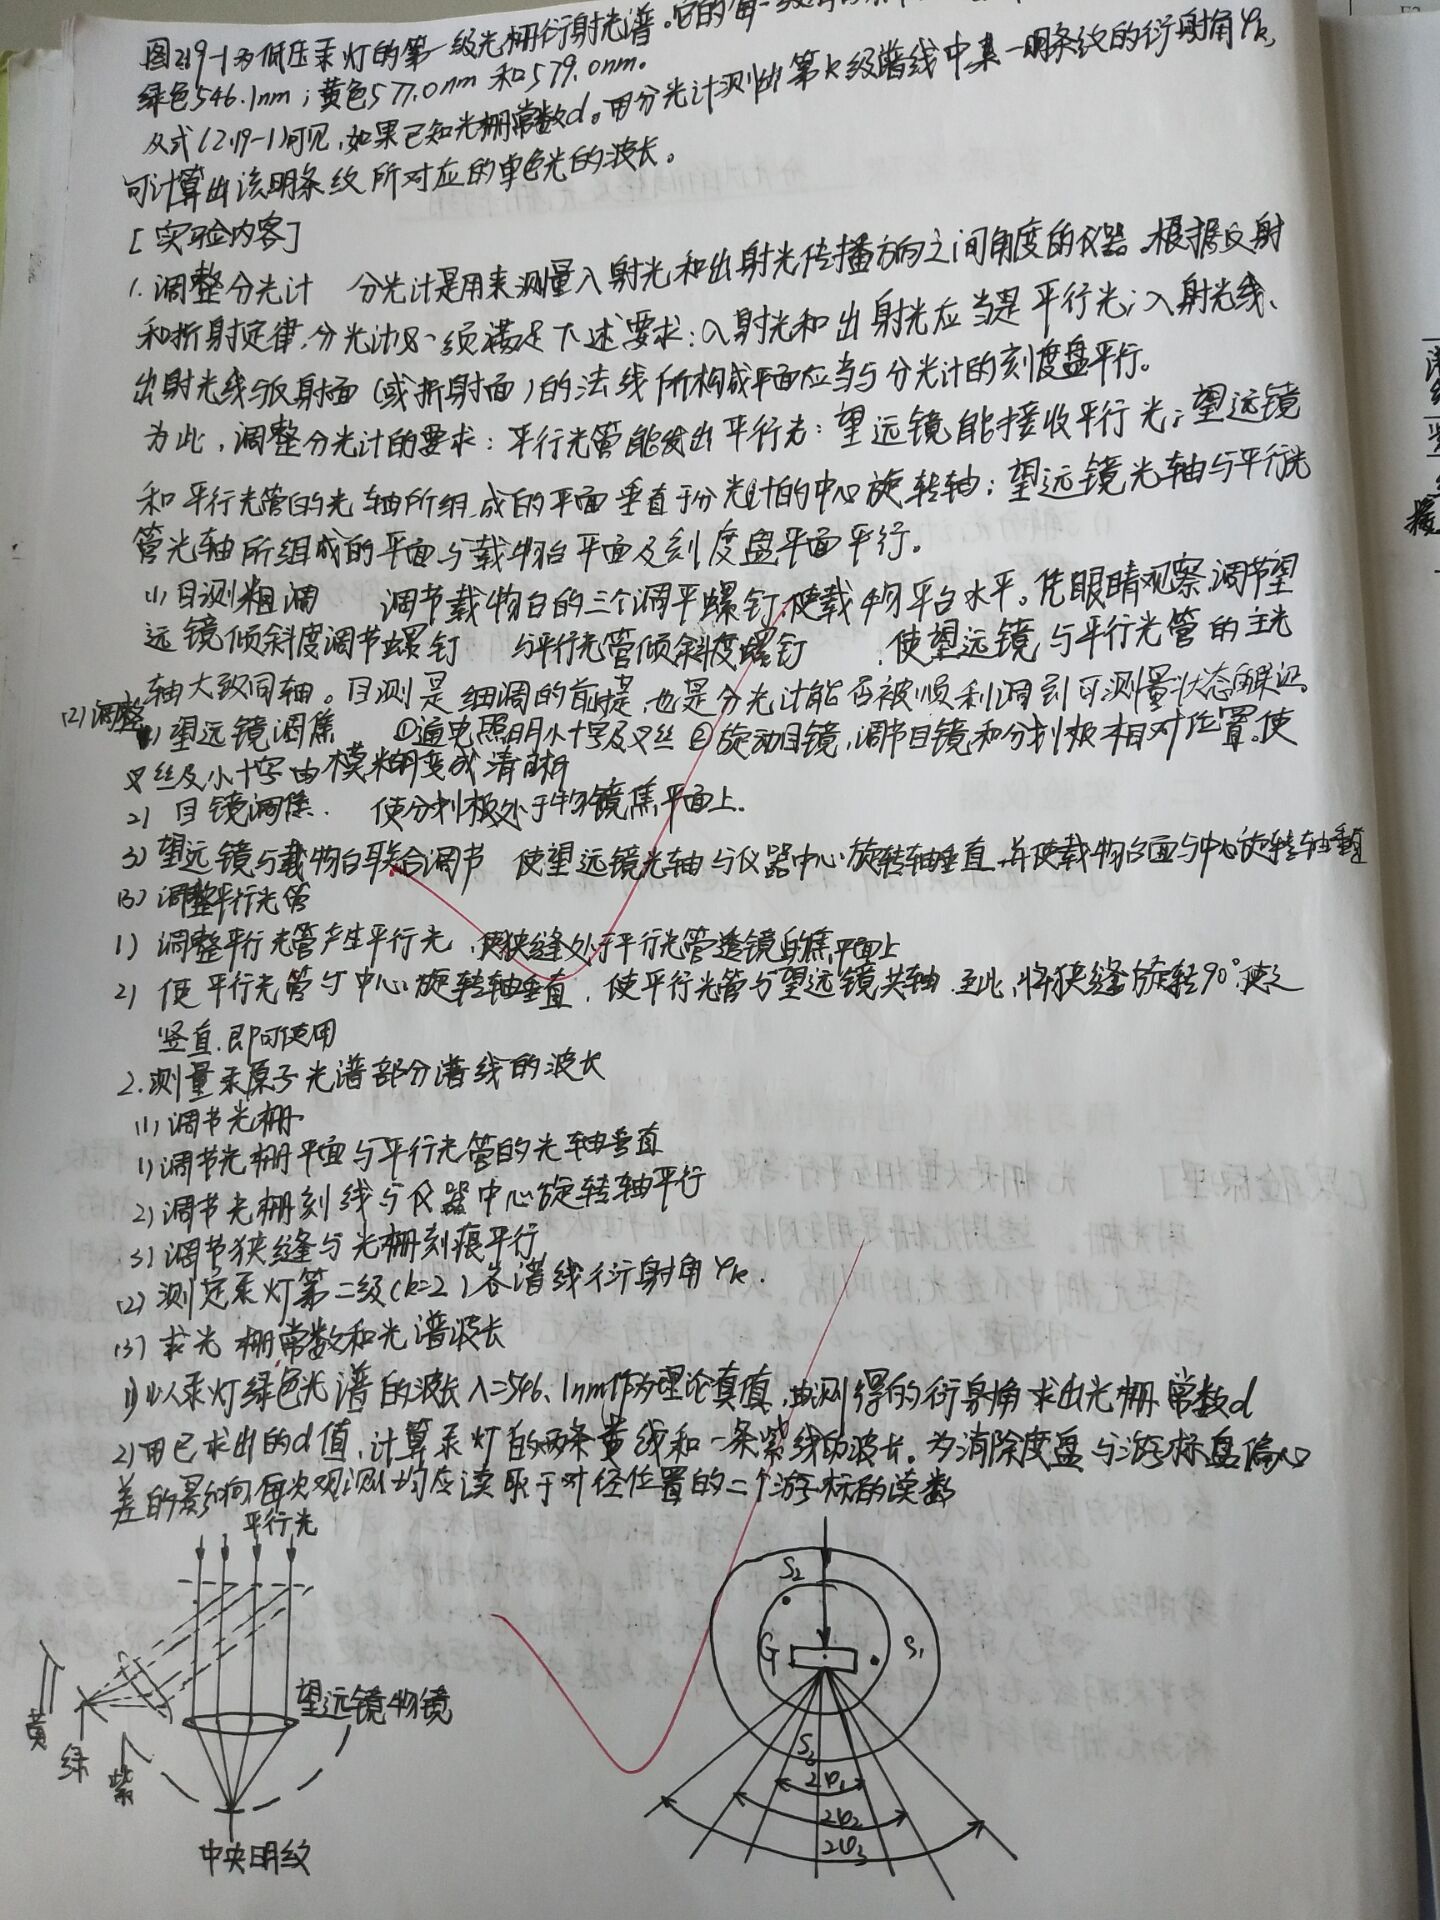 图2.19-1为低压汞灯的第一级光栅衍射光谱。它的每一级
绿色546.1nm；黄色577.0nm和579.0nm。
从式(2.19-1)可见，如果已知光栅常数d。用分光计测出第k级谱线中某一明条纹的衍射角φk,
可计算出该明条纹所对应的单色光的波长。
[实验内容]
1.调整分光计 分光计是用来测量入射光和出射光传播方向之间角度的仪器。根据反射
和折射定律,分光计必须满足下述要求:入射光和出射光应当是平行光;入射光线、
出射光线与反射面(或折射面)的法线所构成平面应当与分光计的刻度盘平行。
为此,调整分光计的要求:平行光管能发出平行光:望远镜能接收平行光;望远镜
和平行光管的光轴所组成的平面垂直于分光计的中心旋转轴;望远镜光轴与平行光
管光轴所组成的平面与载物台平面及刻度盘平面平行。
(1)目测粗调 调节载物台的三个调平螺钉,使载物平台水平。凭眼睛观察,调节望
远镜倾斜度调节螺钉 与平行光管倾斜度螺钉 ,使望远镜与平行光管的主光
轴大致同轴。目测是细调的前提,也是分光计能否被顺利调到可测量状态的保证
(2)调整
1)望远镜调焦 ①通电照明小十字及叉丝②旋动目镜,调节目镜和分划板相对位置。使
叉丝及小十字由模糊变成清晰
2) 目镜调焦. 使分划板处于物镜焦平面上.
3)望远镜与载物台联合调节 使望远镜光轴与仪器中心旋转轴垂直,并使载物台面与中心旋转轴垂直
(3)调整平行光管
1)调整平行光管产生平行光,使狭缝处于平行光管透镜的焦平面上
2)使平行光管与中心旋转轴垂直,使平行光管与望远镜共轴.至此,将狭缝旋转90°,使之
竖直.即可使用
2.测量汞原子光谱部分谱线的波长
(1)调节光栅
1)调节光栅平面与平行光管的光轴垂直
2)调节光栅刻线与仪器中心旋转轴平行
3)调节狭缝与光栅刻痕平行
(2)测定汞灯第二级(k=2)各谱线衍射角φk.
(3)求光栅常数和光谱波长
1)以汞灯绿色光谱的波长λ=546.1nm作为理论真值,由测得的衍射角求出光栅常数d
2)用已求出的d值,计算汞灯的两条黄线和一条紫线的波长。为消除度盘与游标盘偏心
差的影响,每次观测均应读取于对径位置的二个游标的读数
平行光
望远镜物镜
黄
绿
紫
中央明纹
S2
G
S1
S3
2φ1
2φ2
2φ3